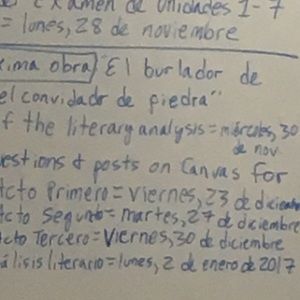 Examen de Unidades 1-7
= lunes, 28 de noviembre
xima obra) "El burlador de
el convidado de piedra"
f the literary analysis = miércoles, 30
de nov.
estions & posts on Canvas for
Acto Primero = viernes, 23 de diciembre
cto Segundo = martes, 27 de diciembre
cto Tercero = Viernes, 30 de diciembre
álisis literario = lunes, 2 de enero de 2017